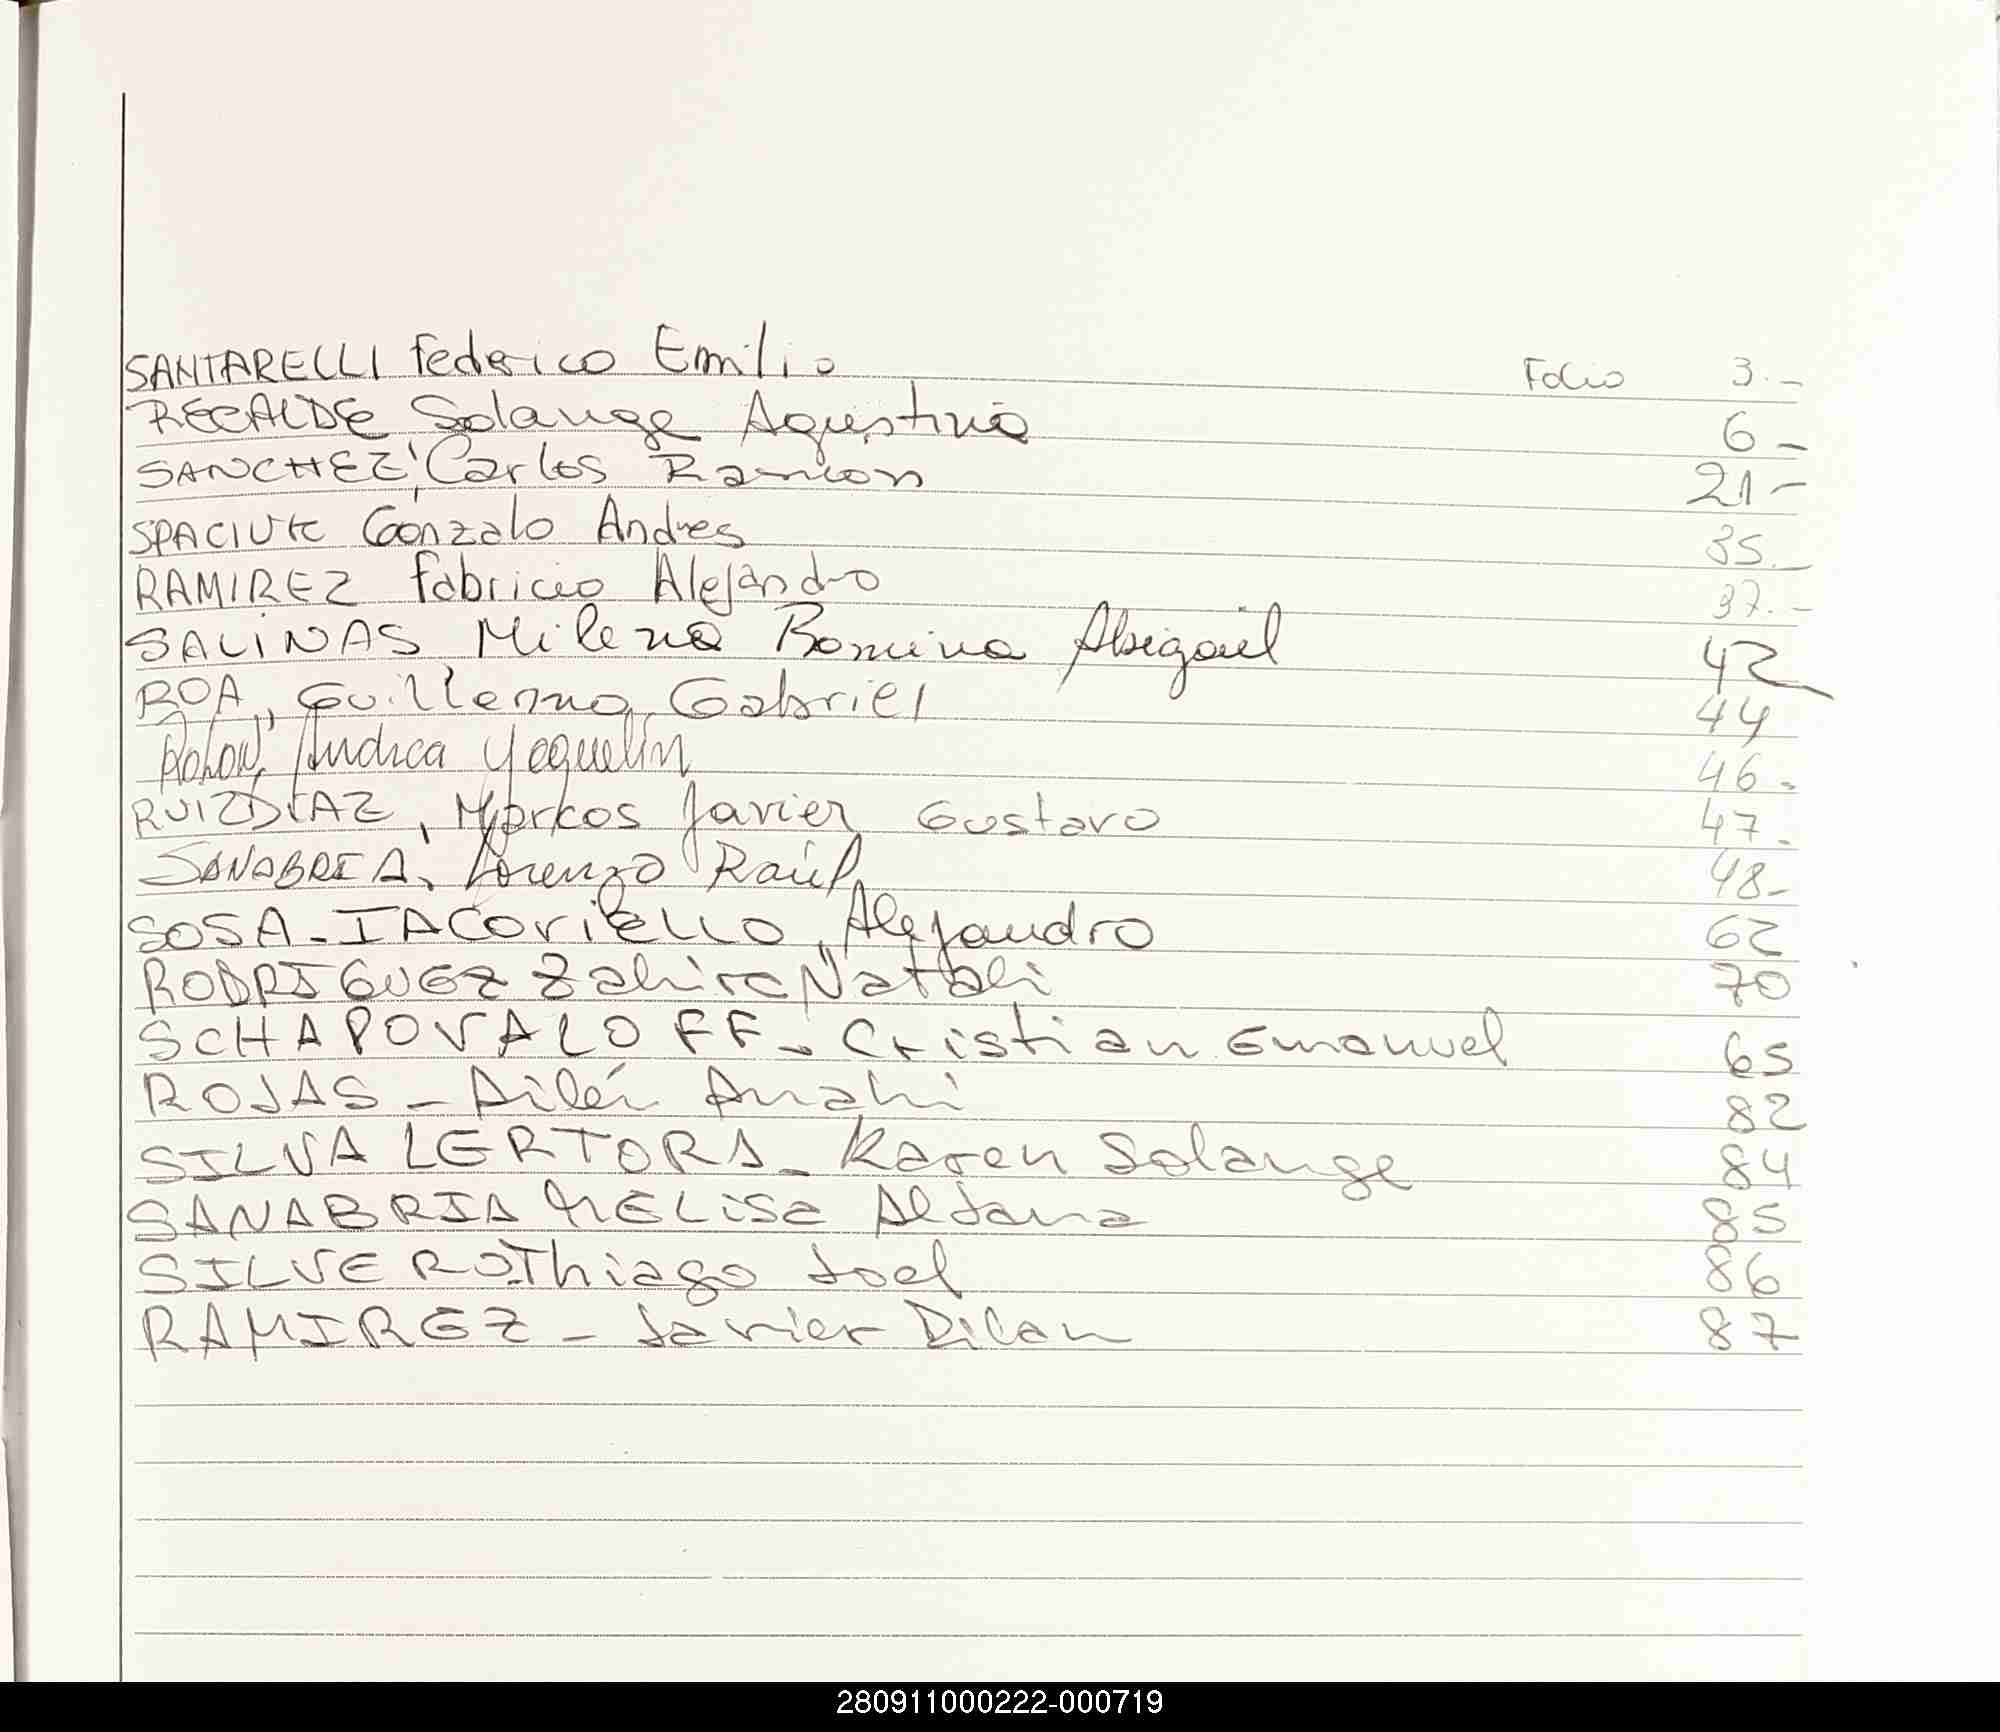 SANTARELLI Federico Emilio Folio 3.-
RECALDE Solange Agustina 6-
SANCHEZ, Carlos Ramon 21-
SPACIUK Gonzalo Andres 35.-
RAMIREZ Fabricio Alejandro 37.-
SALINAS Milena Romina Abigail 42
ROA, Guillermo, Gabriel 44
Rolon, Andrea Yaquelin 46.
RUIZDIAZ, Markos Javier Gustavo 47.
SANABRIA, Lorenzo Raúl 48-
SOSA-IACOVIELLO, Alejandro 62
RODRIGUEZ Zahira Natali 70
SCHAPOVALOFF- Cristian Emanuel 65
ROJAS - Ailén Anahi 82
SILVA LERTORA- Karen Solange 84
SANABRIA MELisa Aldana 85
SILVERO Thiago Joel 86
RAMIREZ - Javier Dilan 87
280911000222-000719